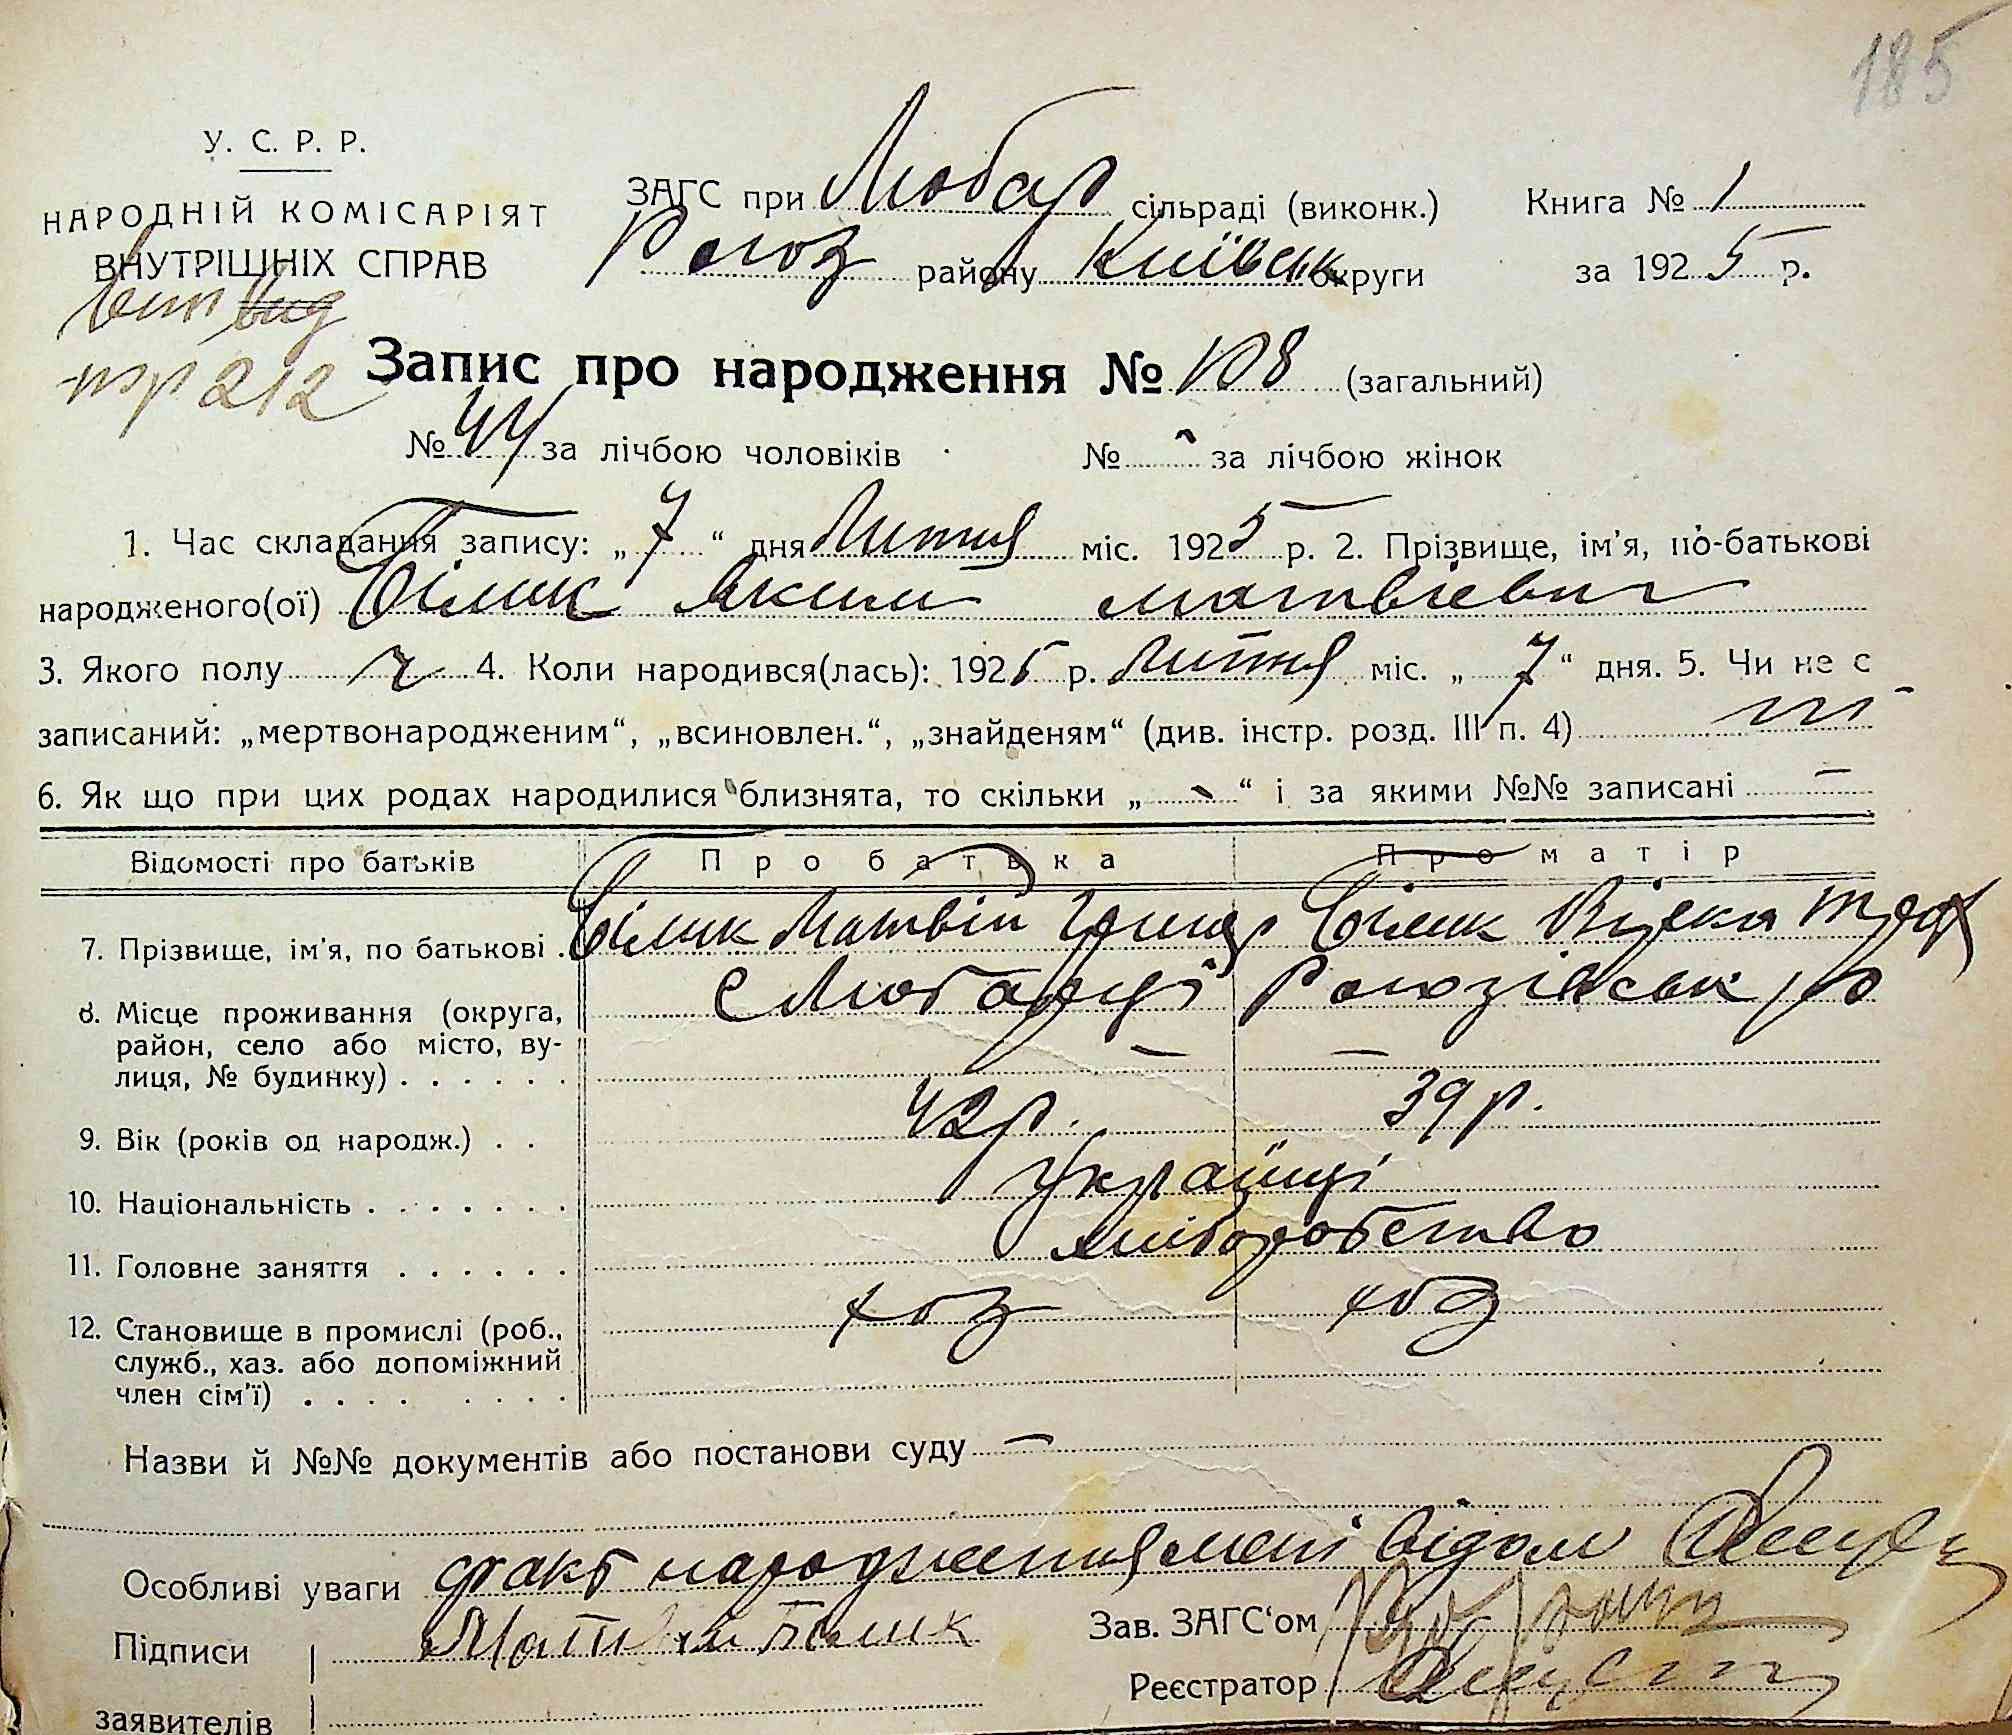 185
У. С. Р. Р.
НАРОДНІЙ КОМІСАРІЯТ
ВНУТРІШНІХ СПРАВ
ЗАГС при Любар сільраді (виконк.)
Рогоз району Київськ округи
Книга № 1
за 1925 р.
212
Запис про народження № 108 (загальний)
№ 44 за лічбою чоловіків № - за лічбою жінок
1. Час складання запису: „7“ дня Липня міс. 1925 р. 2. Прізвище, ім'я, по-батькові
народженого(ої) Білик Яким Матвієвич
3. Якого полу ч 4. Коли народився(лась): 1925 р. Липня міс. „7“ дня. 5. Чи не є
записаний: „мертвонародженим“, „всиновлен.“, „знайденям“ (див. інстр. розд. III п. 4) ні
6. Як що при цих родах народилися близнята, то скільки „-“ і за якими №№ записані —
Відомості про батьків Про батька Про матір
7. Прізвище, ім'я, по батькові . Білик Матвій Григор Білик
8. Місце проживання (округа, район, село або місто, вулиця, № будинку) . . . . . . с Любарці Рогозівськ р — —
9. Вік (років од народж.) . . 42 р. 39 р.
10. Національність . . . . . . . Українці
11. Головне заняття . . . . . . хліборобство
12. Становище в промислі (роб., служб., хаз. або допоміжний член сім'ї) . . . . . . . . хоз хоз
Назви й №№ документів або постанови суду —
Особливі уваги факт народження мені відом
Підписи Матвій Білик
заявителів
Зав. ЗАГС'ом
Реєстратор